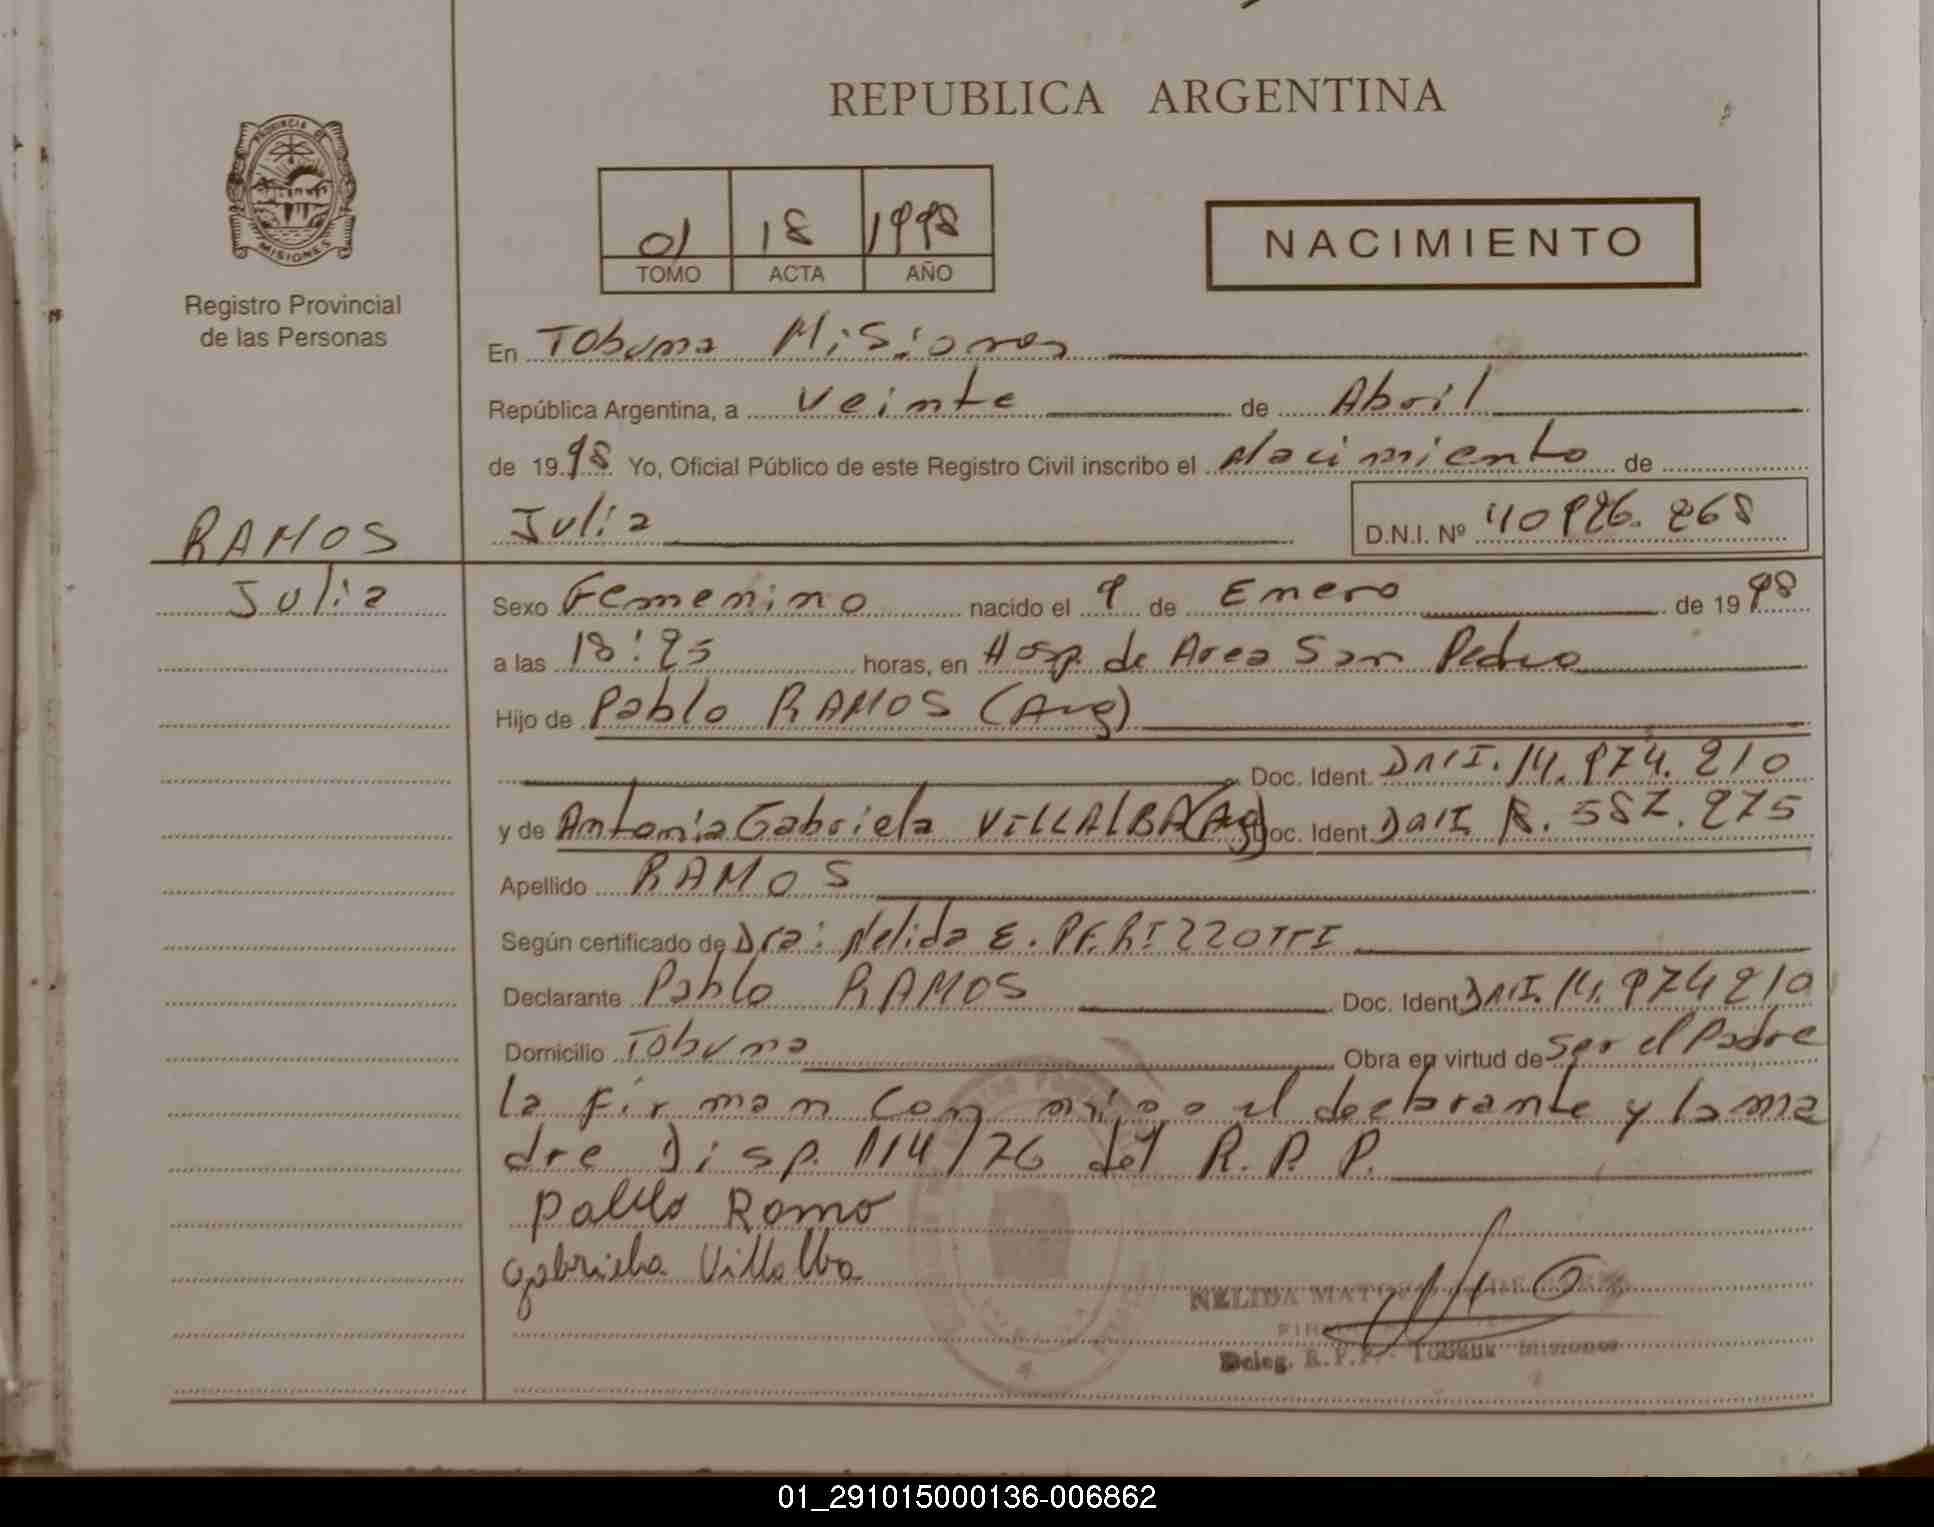 REPUBLICA ARGENTINA
PROVINCIA DE
MISIONES
Registro Provincial
de las Personas
01 18 1998
TOMO ACTA AÑO
NACIMIENTO
En Tobuna Misiones
República Argentina, a Veinte de Abril
de 1998 Yo, Oficial Público de este Registro Civil inscribo el Nacimiento de
Julia D.N.I. Nº
RAMOS
Julia
Sexo Femenino nacido el 9 de Enero de 1998
a las 18:25 horas, en Hosp. de Area San Pedro
Hijo de Pablo RAMOS (Arg)
Doc. Ident. DNI. 14.974.210
y de Antonia Gabriela VILLALBA (Arg) Doc. Ident. DNI
Apellido RAMOS
Según certificado de Dra: Nelida E. PERIZZOTTI
Declarante Pablo RAMOS Doc. Ident. DNI. 14.974210
Domicilio Tobuna Obra en virtud de Ser el Padre
la firman con migo el declarante y la ma
dre Disp. 114/76 del R.P.P.
Pablo Ramo
Gabriela Villalba
NELIDA
Deleg. R.P.P. - Tobuna Misiones
01_291015000136-006862